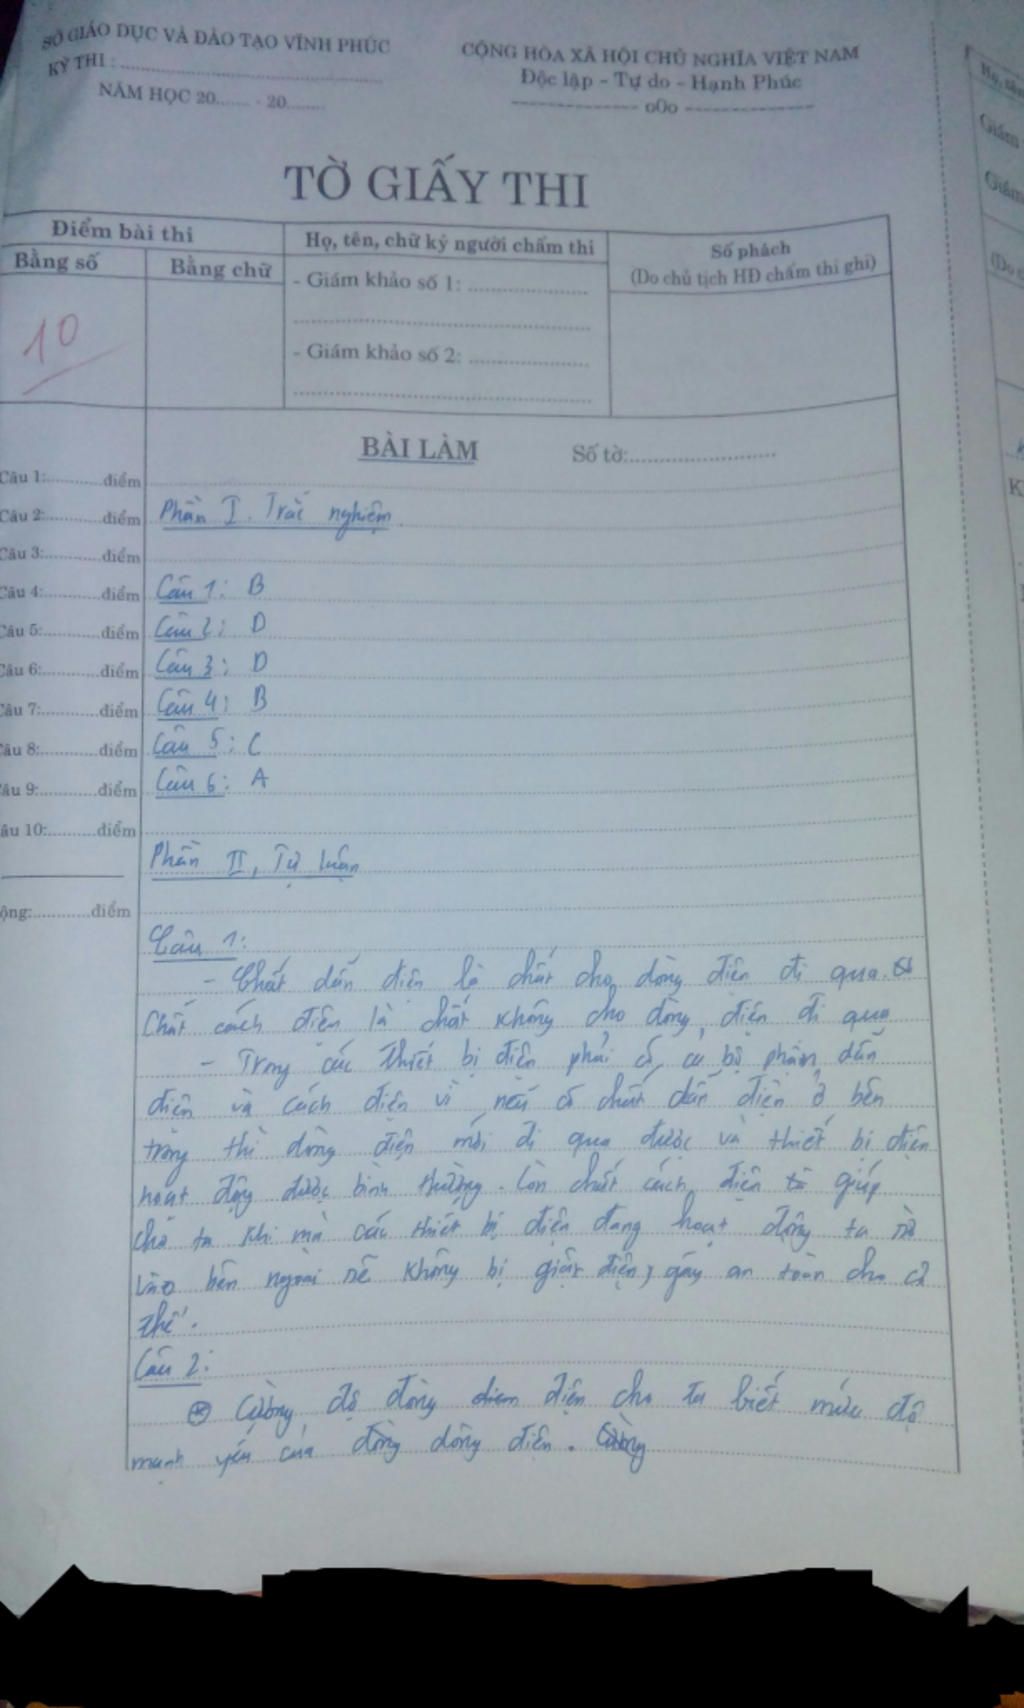 SỞ GIÁO DỤC VÀ ĐÀO TẠO VĨNH PHÚC
KỲ THI :
NĂM HỌC 20....... - 20.......
CỘNG HÒA XÃ HỘI CHỦ NGHĨA VIỆT NAM
Độc lập - Tự do - Hạnh Phúc
o0o
TỜ GIẤY THI
Điểm bài thi
Bằng số
Bằng chữ
10
Họ, tên, chữ ký người chấm thi
- Giám khảo số 1:
- Giám khảo số 2:
Số phách
(Do chủ tịch HĐ chấm thi ghi)
BÀI LÀM
Số tờ:
Câu 1:...........điểm
Câu 2:...........điểm
Câu 3:...........điểm
Câu 4:...........điểm
Câu 5:...........điểm
Câu 6:...........điểm
Câu 7:...........điểm
Câu 8:...........điểm
Câu 9:...........điểm
Câu 10:..........điểm
ộng:...........điểm
Phần I. Trắc nghiệm
Câu 1: B
Câu 2: D
Câu 3: D
Câu 4: B
Câu 5: C
Câu 6: A
Phần II, Tự luận
Câu 1:
- Chất dẫn điện là chất cho dòng điện đi qua.
Chất cách điện là chất không cho dòng điện đi qua
- Trong các thiết bị điện phải có cả bộ phận dẫn
điện và cách điện vì nếu có chất dẫn điện ở bên
trong thì dòng điện mới đi qua được và thiết bị điện
hoạt động được bình thường. Còn chất cách điện giúp
cho ta khi mà các thiết bị điện đang hoạt động ta sờ
vào bên ngoài sẽ không bị giật điện, gây an toàn cho cơ
thể.
Câu 2:
Cường độ dòng điện cho ta biết mức độ
mạnh yếu của dòng điện. Cường
Họ, tên
Giám
Giám
(Do c